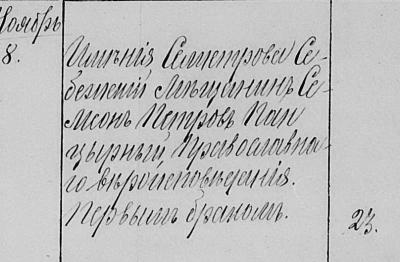 Ноябрь
8.
Имѣнія Саметрова Се-
бежскій Мѣщанинъ Се-
мсонъ Петровъ Пан
цырный, Православна-
го вѣроисповѣданія.
Первымъ бракомъ.
23.